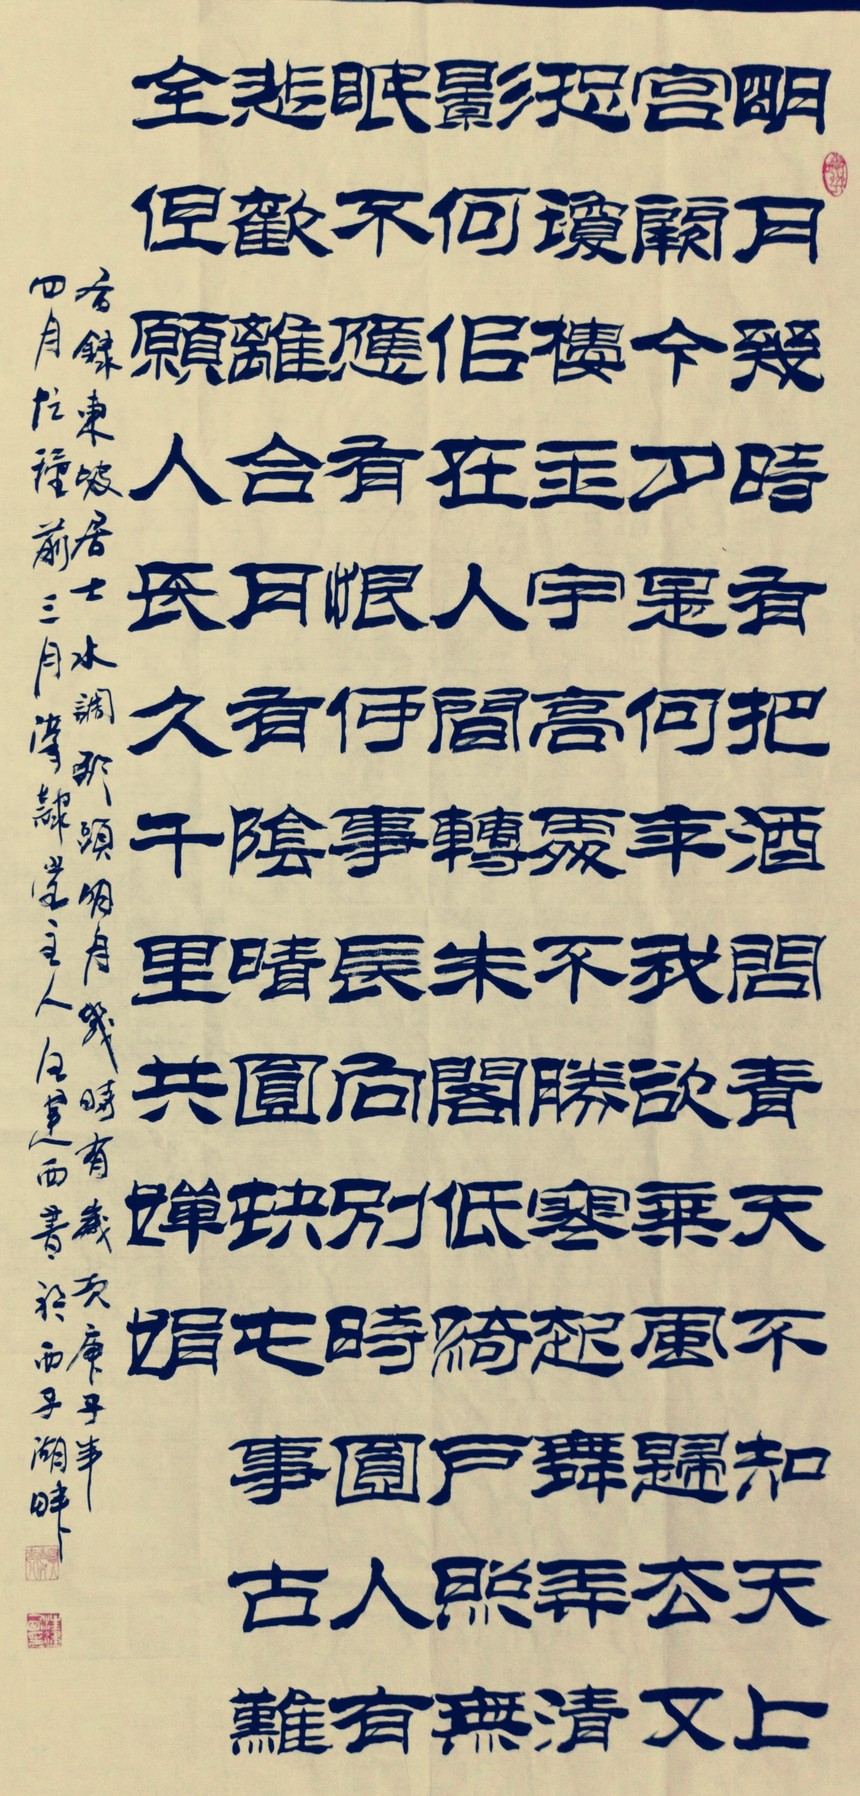 明月幾時有把酒問青天不知天上
宮闕今夕是何年我欲乘風歸去又
恐瓊樓玉宇高處不勝寒起舞弄清
影何佀在人間轉朱閣低綺戶照無
眠不應有恨何事長向別時圓人有
悲歡離合月有陰晴圓缺此事古難
全但願人長久千里共嬋娟
錄東坡居士水調歌頭明月幾時有歲次庚子年
四月忙種前三月漢隸堂主人西書於西子湖畔